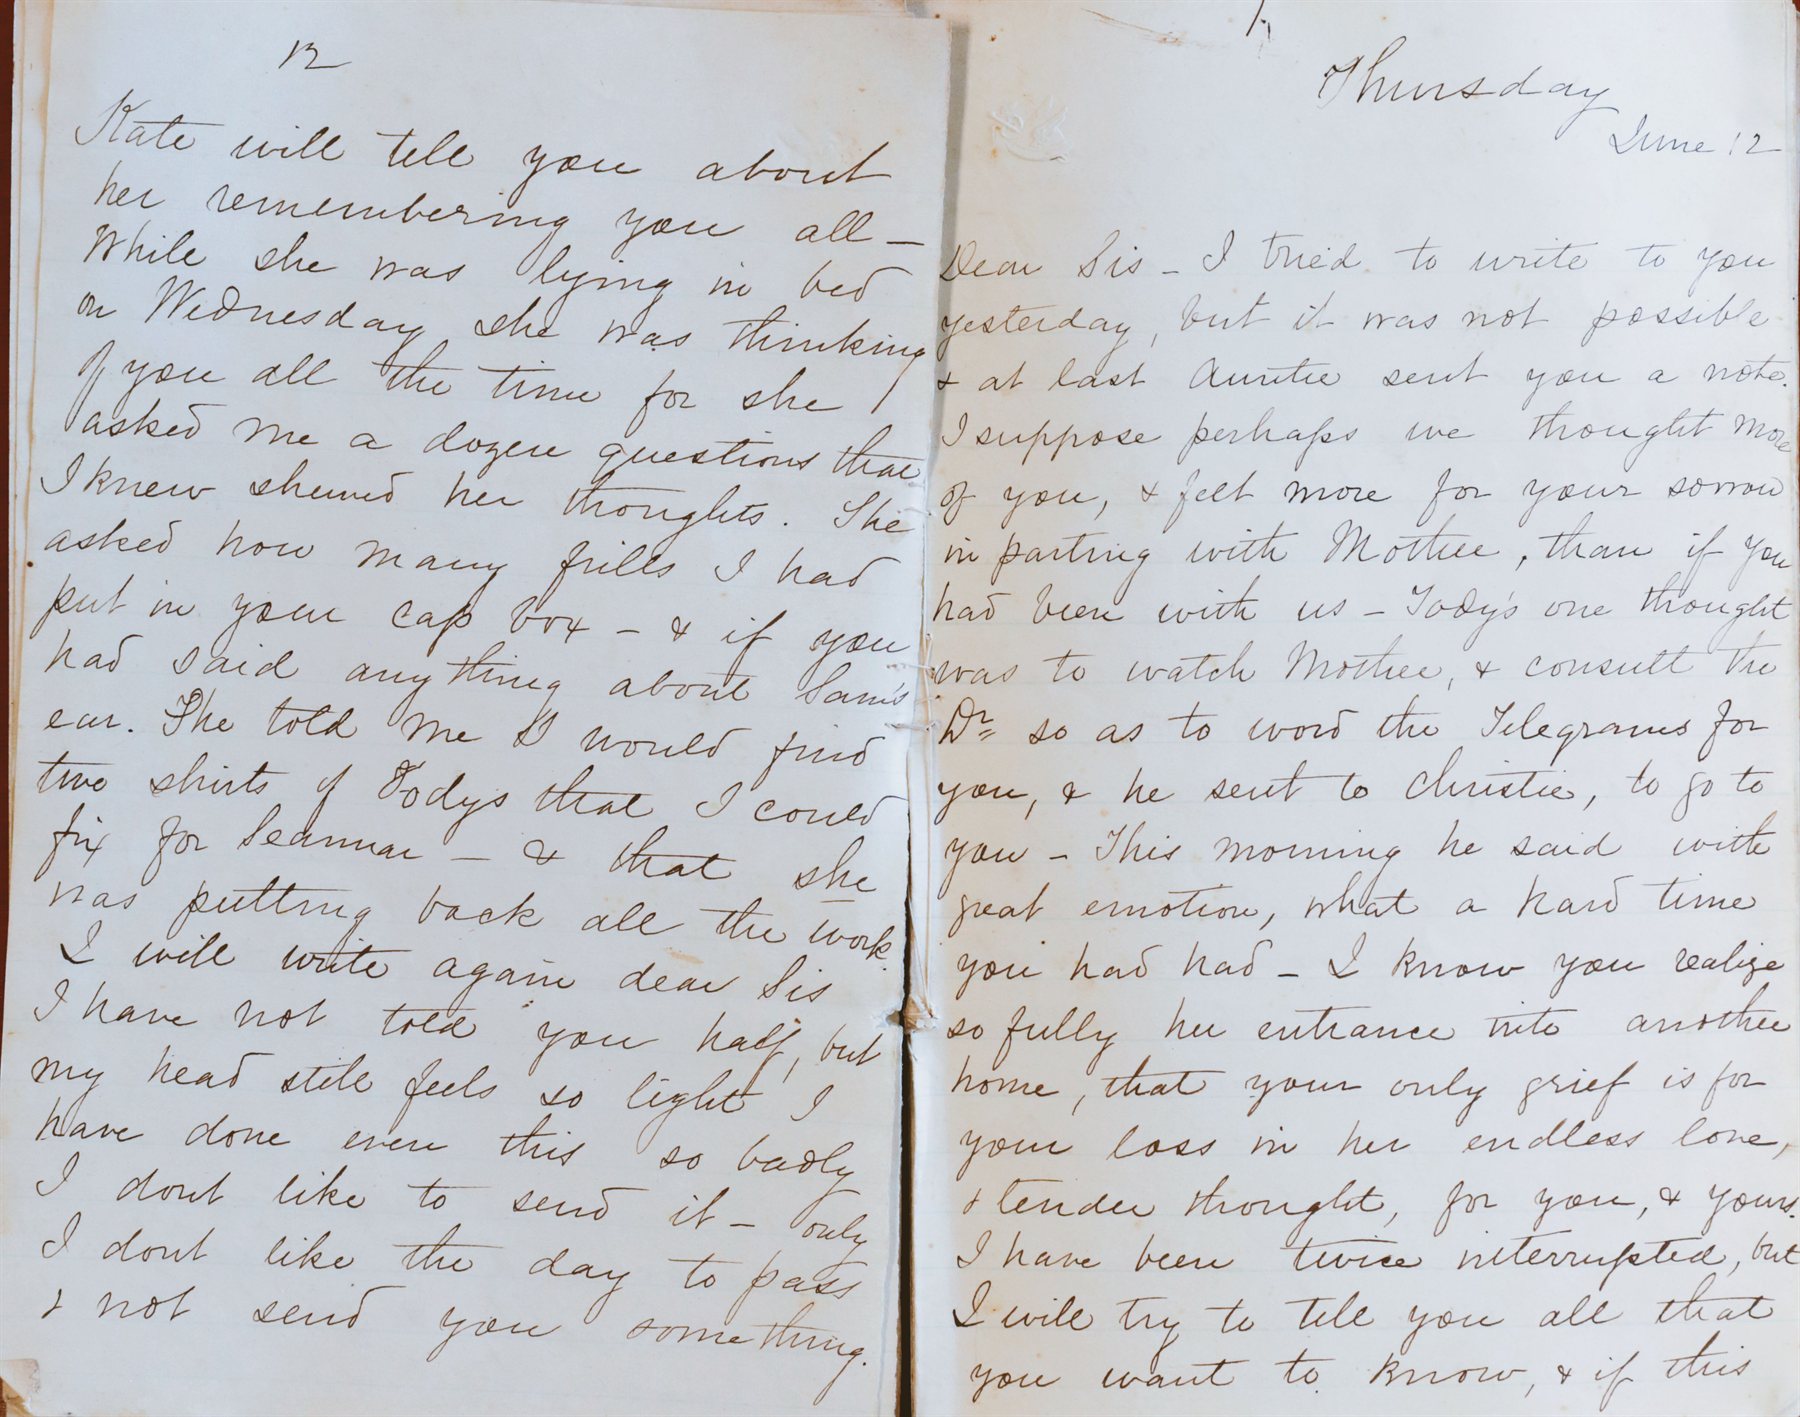 12
Kate will tell you about
her remembering you all –
While she was lying in bed
on Wednesday she was thinking
of you all the time for she
asked me a dozen questions that
I knew shewed her thoughts. She
asked how many frills I had
put in your cap box – & if you
had said anything about Sam's
ear. She told me I would find
two shirts of Todys that I could
fix for Seannar – & that she
was putting back all the work.
I will write again dear Sis
I have not told you half, but
my head still feels so light I
have done even this so badly
I dont like to send it – only
I dont like the day to pass
& not send you something.
Thursday
June 12
Dear Sis – I tried to write to you
yesterday, but it was not possible
& at last Auntie sent you a note.
I suppose perhaps we thought more
of you, & felt more for your sorrow
in parting with Mother, than if you
had been with us – Tody's one thought
was to watch Mother, & consult the
Dr so as to word the Telegrams for
you, & he sent to Christie, to go to
you – This morning he said with
great emotion, what a hard time
you had had – I know you realize
so fully her entrance into another
home, that your only grief is for
your loss in her endless love,
& tender thought, for you, & yours.
I have been twice interrupted, but
I will try to tell you all that
you want to know, & if this